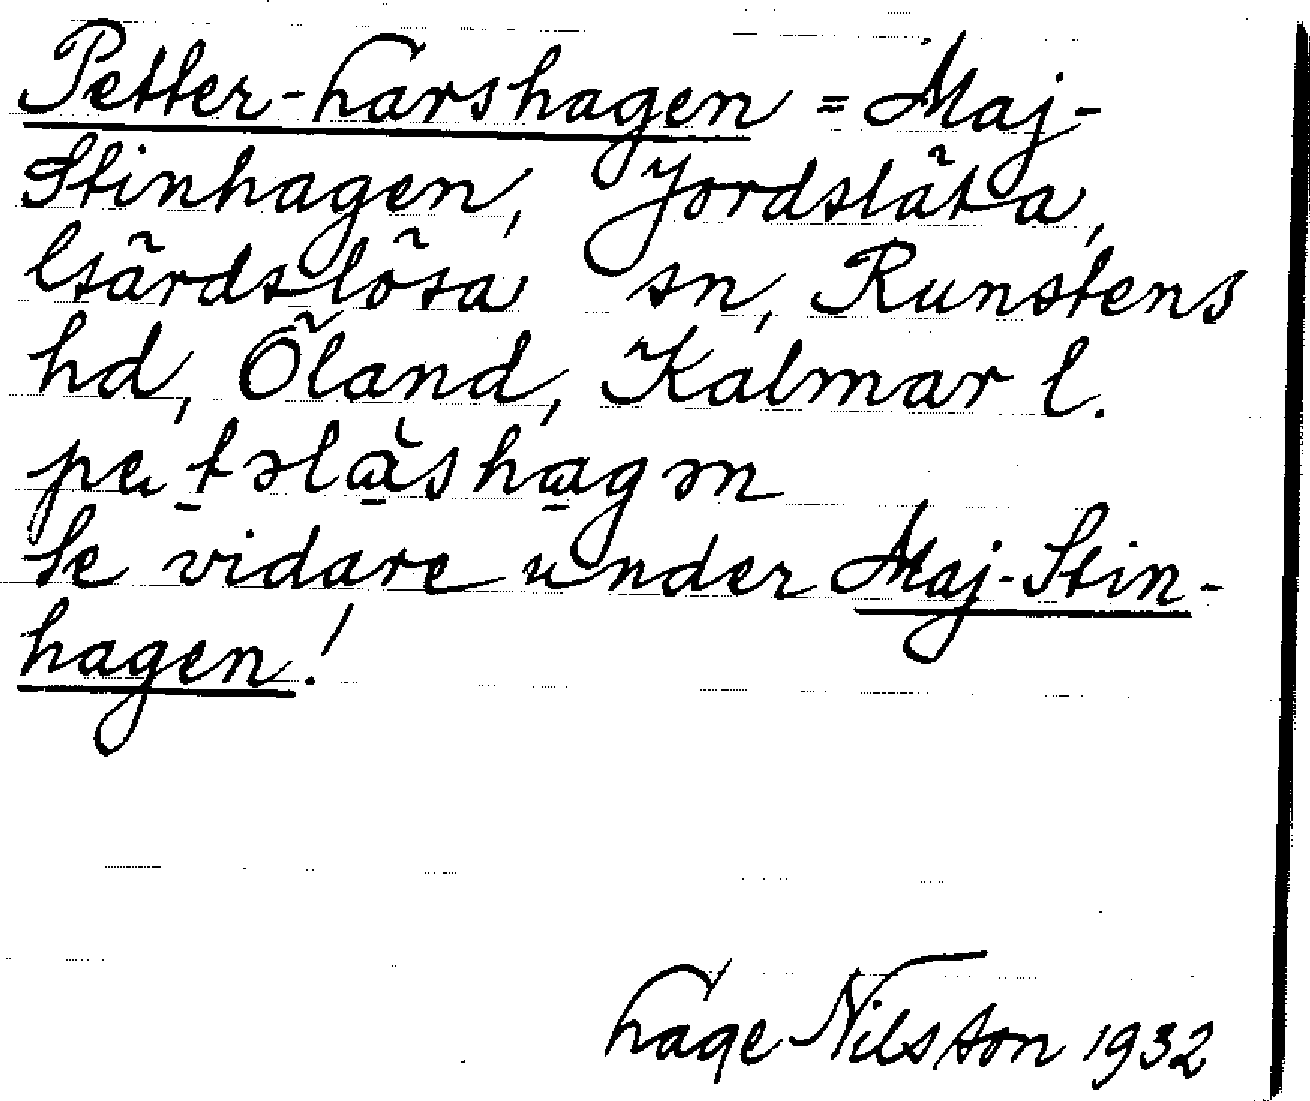 Petter-Larshagen = Maj-
Stinhagen, Jordsläta,
Gärdslösa sn, Runstens
hd, Öland, Kalmar l.
Se vidare under Maj-Stin-
hagen!
Lage Nilsson 1932